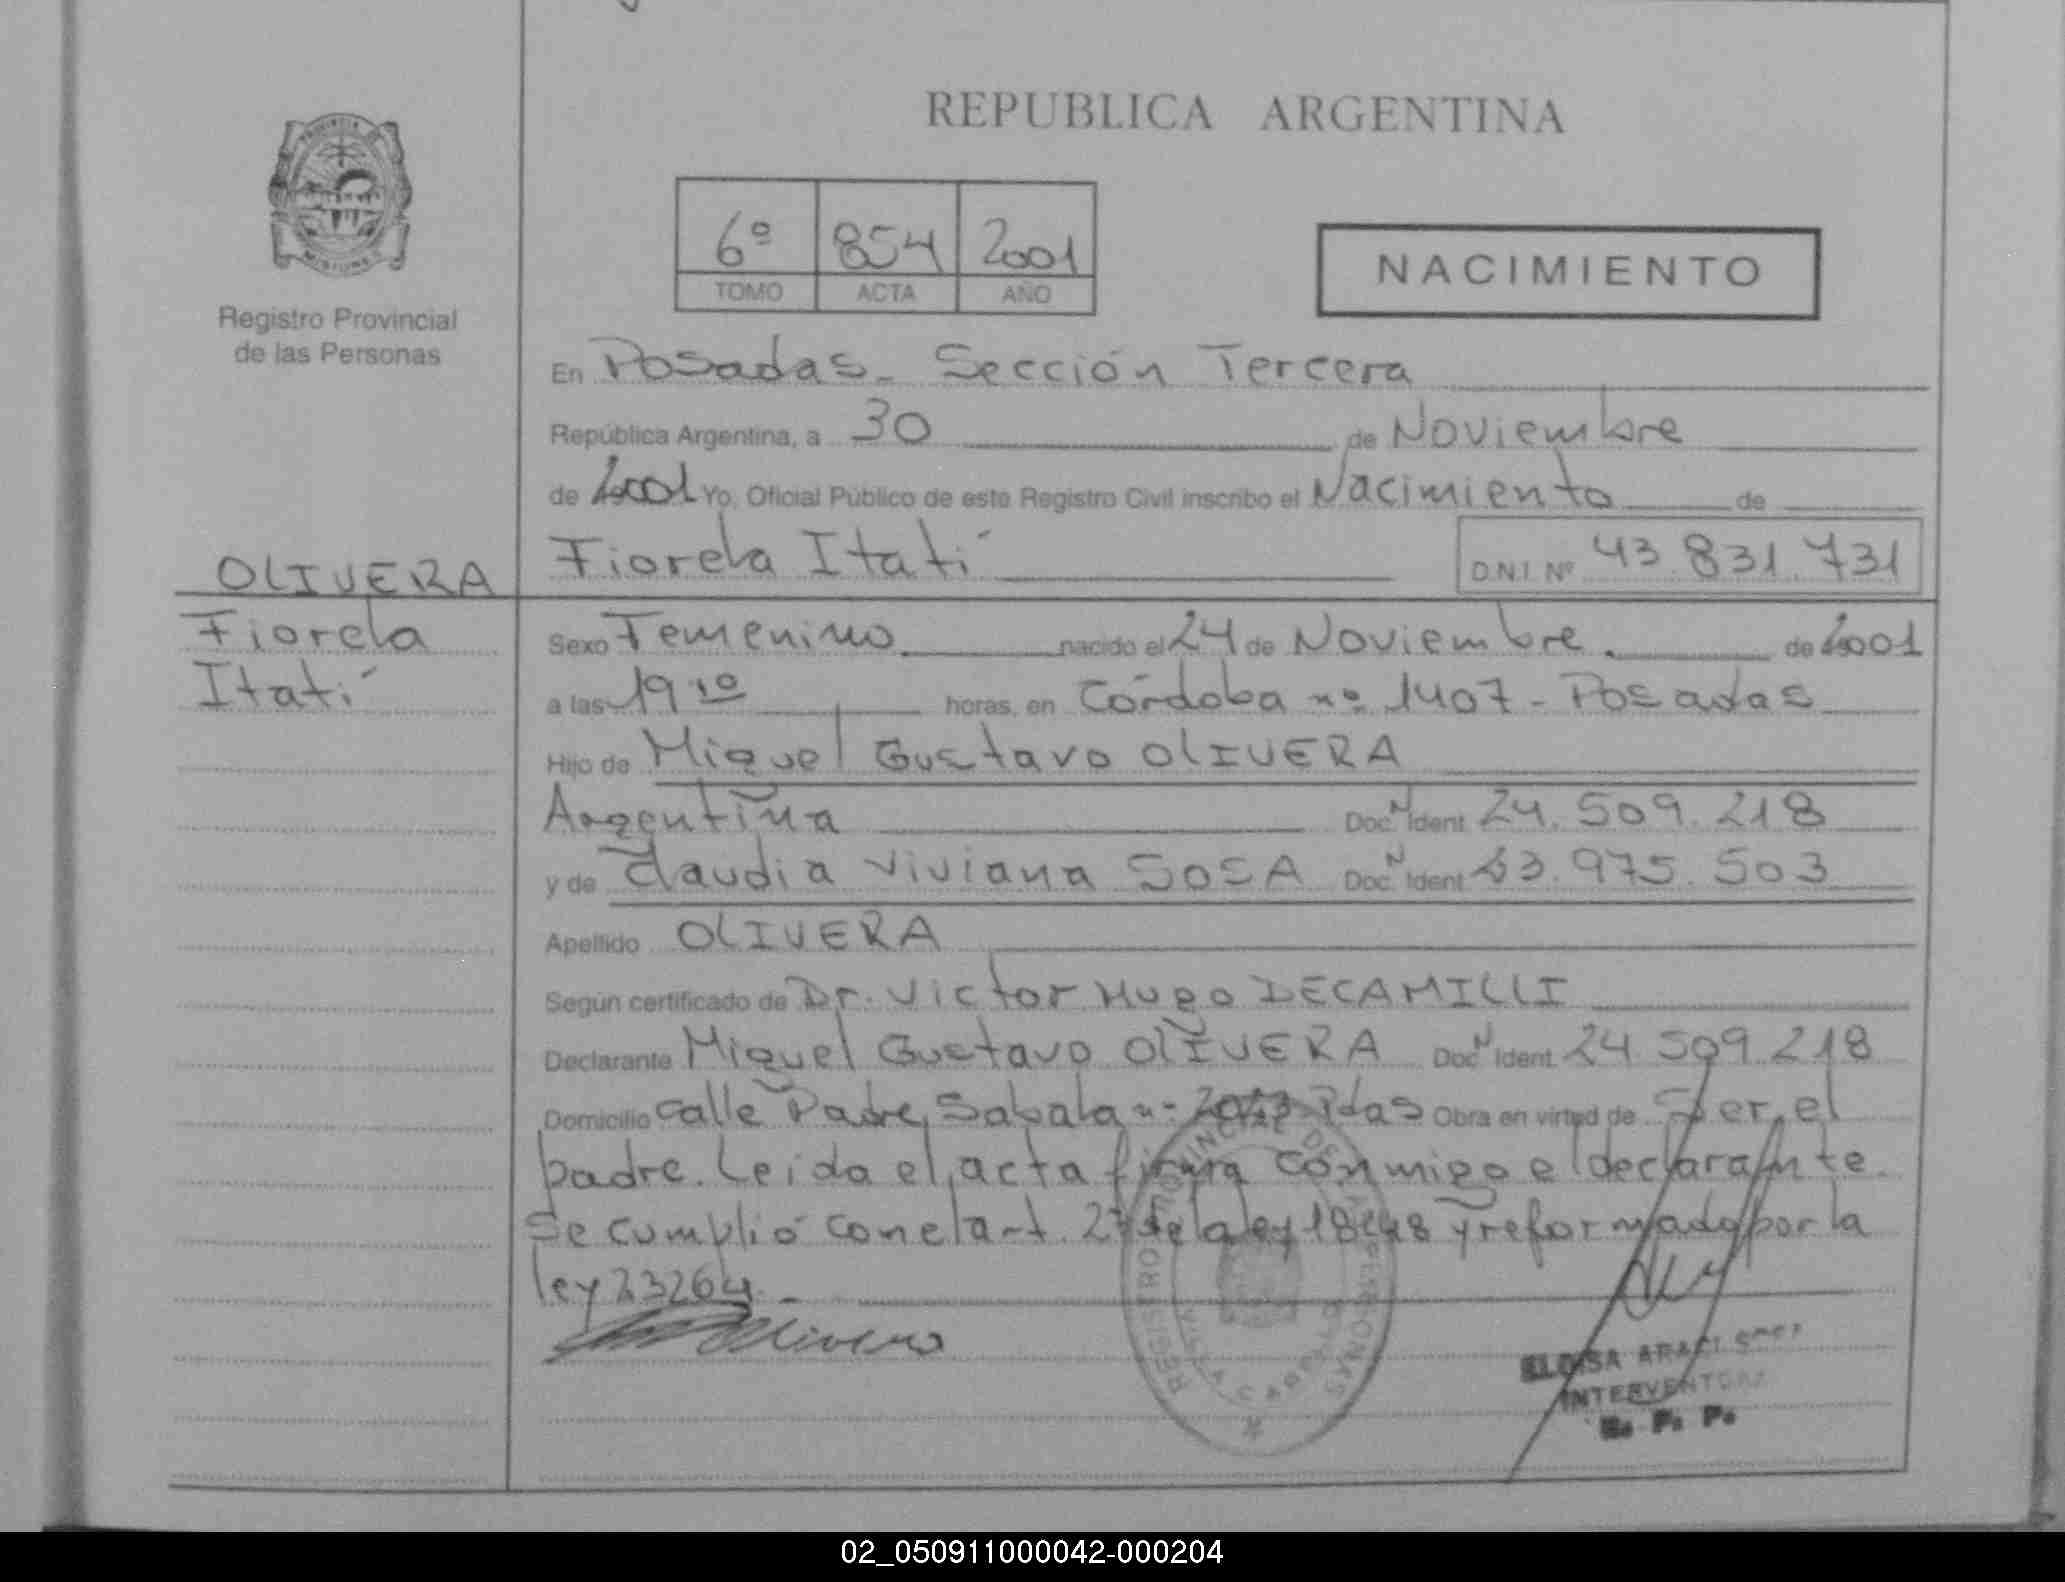 REPUBLICA ARGENTINA
PROVINCIA DE
MISIONES
Registro Provincial
de las Personas
6º 854 2001
TOMO ACTA AÑO
NACIMIENTO
En Posadas - Sección Tercera
República Argentina, a 30 de Noviembre
de 2001 Yo, Oficial Público de este Registro Civil inscribo el Nacimiento de
OLIVERA
Fiorela
Itatí
Fiorela Itatí D.N.I. Nº 43.831.731
Sexo Femenino nacido el 24 de Noviembre de 2001
a las 19 10 horas, en Córdoba nº 1407 - Posadas
Hijo de Miguel Gustavo OLIVERA
Argentina Doc. N Ident 24.509.218
y de Claudia Viviana SOSA Doc. N Ident 23.975.503
Apellido OLIVERA
Según certificado de Dr. Victor Hugo DECAMILLI
Declarante Miguel Gustavo OLIVERA Doc. N Ident. 24.509.218
Domicilio Calle Padre Sabala nº Pdas Obra en virtud de Ser el
padre. Leida el acta firma conmigo el declarante.
Se cumplió con el art. 27 de la ley 18248 y reformado por la
ley 23264. -
Olivera
REGISTRO PROVINCIAL DE LAS PERSONAS
ELOISA ARACI
INTERVENTORA
R. P. P.
02_050911000042-000204